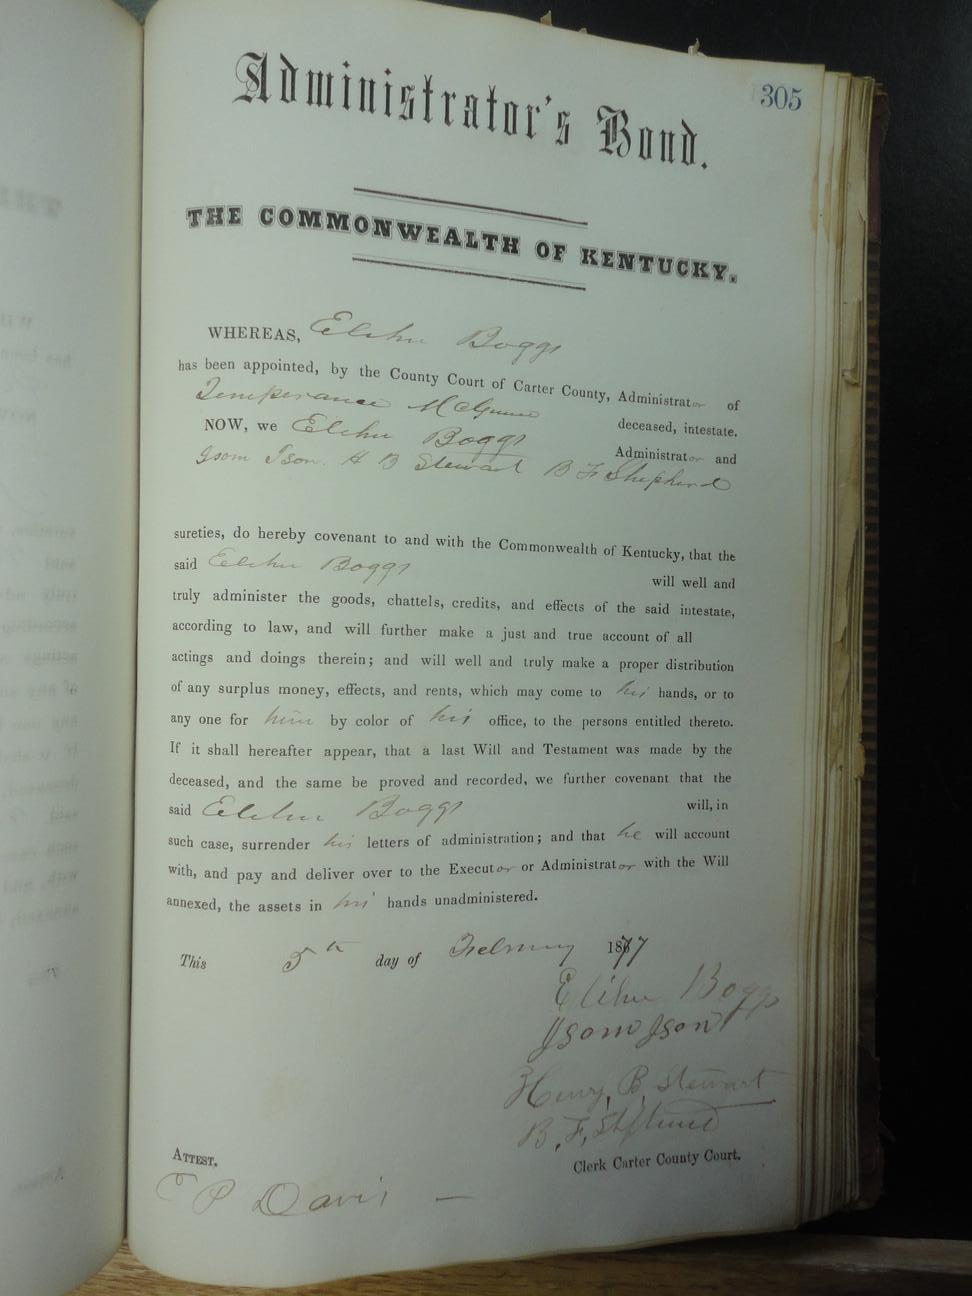 305
Administrator's Bond.
THE COMMONWEALTH OF KENTUCKY.
WHEREAS, Elihu Boggs
has been appointed, by the County Court of Carter County, Administrator of
Temperance McGuire deceased, intestate.
NOW, we Elihu Boggs Administrator and
Isom Ison. H B Stewart B F Shepherd
sureties, do hereby covenant to and with the Commonwealth of Kentucky, that the
said Elihu Boggs will well and
truly administer the goods, chattels, credits, and effects of the said intestate,
according to law, and will further make a just and true account of all
actings and doings therein; and will well and truly make a proper distribution
of any surplus money, effects, and rents, which may come to his hands, or to
any one for him by color of his office, to the persons entitled thereto.
If it shall hereafter appear, that a last Will and Testament was made by the
deceased, and the same be proved and recorded, we further covenant that the
said Elihu Boggs will, in
such case, surrender his letters of administration; and that he will account
with, and pay and deliver over to the Executor or Administrator with the Will
annexed, the assets in his hands unadministered.
This 5th day of February 1877
Elihu Boggs
Isom Ison
Henry, B, Stewart
B, F,
ATTEST,
Clerk Carter County Court.
P Davis